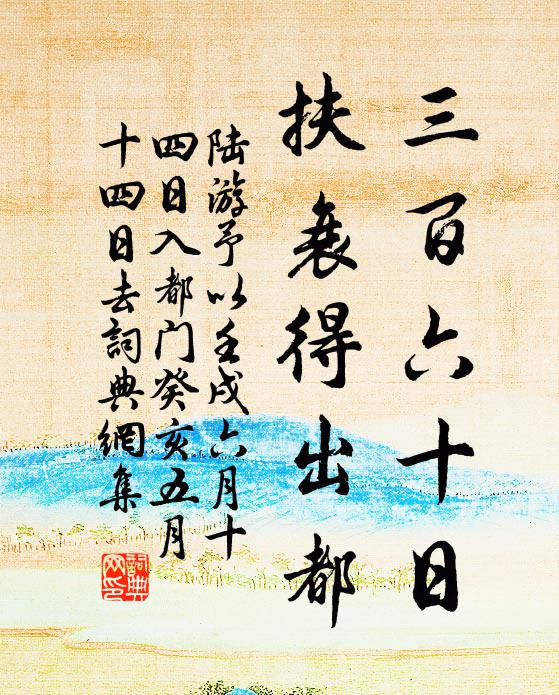 三百六十日
扶衰得出都
陆游予以壬戌六月十
四日入都门癸亥五月
十四日去詞典網集
詞典
网印